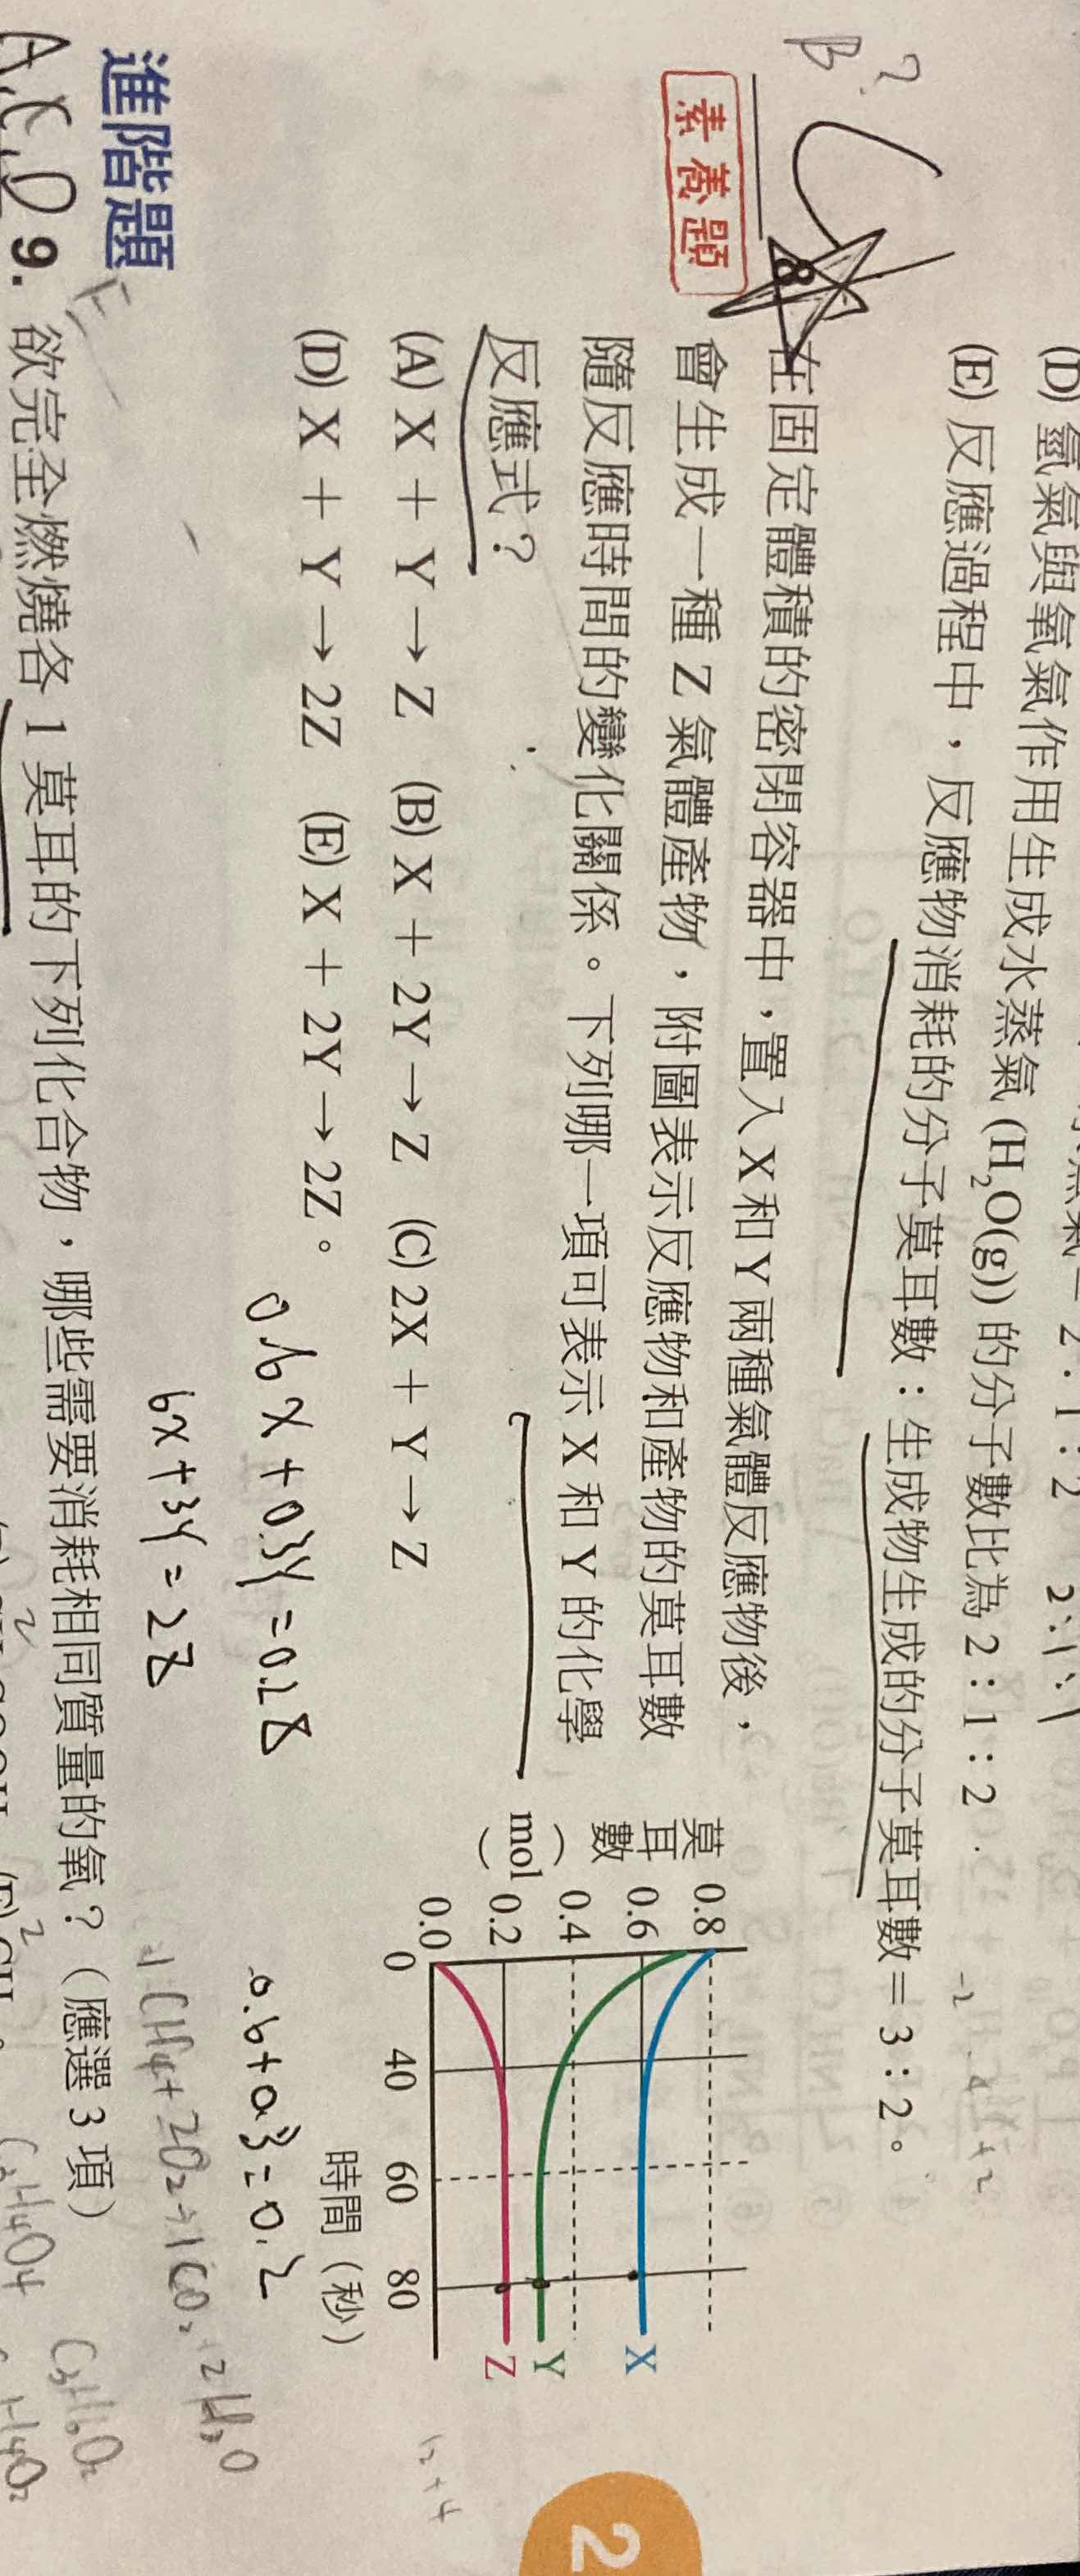 (D) 氫氣與氧氣作用生成水蒸氣
2:1:1
(E) 反應過程中,反應物消耗的分子莫耳數:生成物生成的分子莫耳數=3:2。
(H₂O(g)) 的分子數比為 2:1:2
? B
C
素養題
8 在固定體積的密閉容器中,置入 X 和 Y 兩種氣體反應物後,
會生成一種 Z 氣體產物,附圖表示反應物和產物的莫耳數
隨反應時間的變化關係。下列哪一項可表示 X 和 Y 的化學
反應式?
(A) X + Y → Z (B) X + 2Y → Z (C) 2X + Y → Z
(D) X + Y → 2Z (E) X + 2Y → 2Z。
莫耳數(mol)
0.8
0.6
0.4
0.2
0.0
0 40 60 80
時間(秒)
X
Y
Z
0.6X + 0.3Y = 0.2Z
6X + 3Y = 2Z
0.6 + 0.3 = 0.2
1CH₄ + 2O₂ → 1CO₂ + 2H₂O
2
進階題
A,C,D 9. 欲完全燃燒各 1 莫耳的下列化合物,哪些需要消耗相同質量的氧?(應選 3 項)
E
C₂H₄O₄
C₃H₆O₂